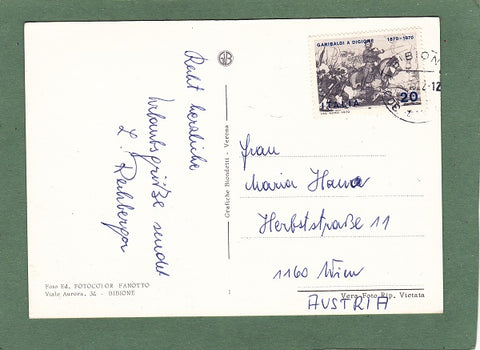 Recht herzliche
Urlaubsgrüße sendet
L. Reichberger
Foto Ed. FOTOCOLOR FANOTTO
Viale Aurora, 34 - BIBIONE
Grafiche Biondetti - Verona
GARIBALDI A DIGIONE 1870-1970
ITALIA 20
BIBIONE
Frau
Maria Hawa
Herbststraße 11
1160 Wien
AUSTRIA
Vera Foto Rip. Vietata
1